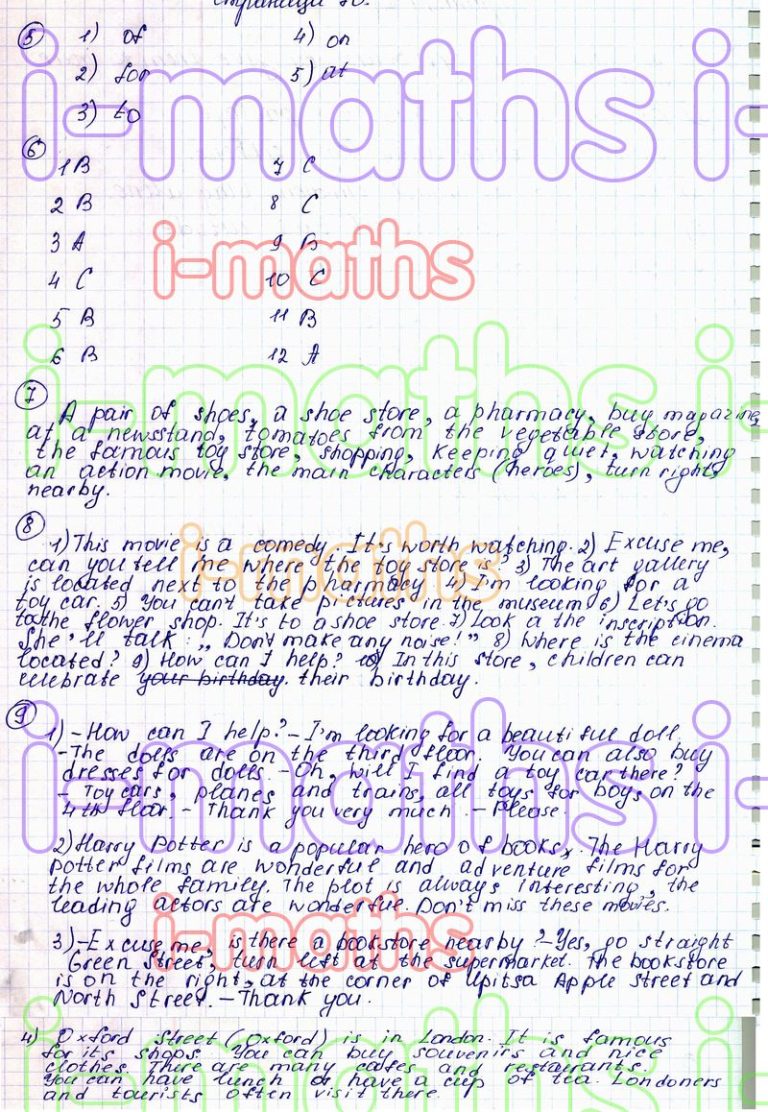 страница 70.
5 1) of 4) on
2) for 5) at
3) to
6
1 B 7 C
2 B 8 C
3 A 9 B
4 C 10 C
5 B 11 B
6 B 12 A
7
A pair of shoes, a shoe store, a pharmacy, buy magazine
at a newsstand, tomatoes from the vegetable store,
the famous toy store, shopping, keeping quiet, watching
an action movie, the main characters (heroes), turn right,
nearby.
8
1) This movie is a comedy. It's worth watching. 2) Excuse me,
can you tell me where the toy store is? 3) The art gallery
is located next to the pharmacy 4) I'm looking for a
toy car. 5) You can't take pictures in the museum 6) Let's go
to the flower shop. It's to a shoe store. 7) Look a the inscription.
She'll talk: „Don't make any noise!" 8) Where is the cinema
located? 9) How can I help? 10) In this store, children can
celebrate your birthday. their birthday.
9
1) - How can I help? - I'm looking for a beautiful doll.
- The dolls are on the third floor. You can also buy
dresses for dolls. - Oh, will I find a toy car there?
- Toy cars, planes and trains, all toys for boys on the
4th floor. - Thank you very much. - Please.
2) Harry Potter is a popular hero of books. The Harry
Potter films are wonderful and adventure films for
the whole family. The plot is always interesting, the
leading actors are wonderful. Don't miss these movies.
3) - Excuse me, is there a bookstore nearby? - Yes, go straight
Green Street, turn left at the supermarket. The bookstore
is on the right, at the corner of Upitsa Apple Street and
North Street. - Thank you.
4) Oxford Street (Oxford) is in London. It is famous
for its shops. You can buy souvenirs and nice
clothes. There are many cafes and restaurants.
You can have lunch or have a cup of tea. Londoners
and tourists often visit there.
i-maths i-
i-maths
i-maths i-
i-maths
i-maths i-
i-maths
i-maths i-